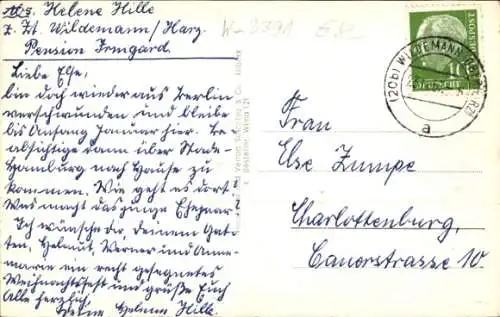 Abs. Helene Hille
z. Zt. Wildemann/Harz
Pension Irmgard.
W-3391
Liebe Else,
bin doch wieder aus Berlin
verschwunden und bleibe
bis Anfang Januar hier. Be
absichtige dann über Stade-
Hamburg nach Hause zu
kommen. Wie geht es dort.
Was macht das junge Ehepaar
Ich wünsche Dir, Deinem Gat-
ten, Helmut, Werner und Anne-
marie ein recht gesegnetes
Weihnachtsfest und grüße Euch
Alle herzlich,
Deine Helene Hille.
Bestellnr. Wilna 121
(20b) WILDEMANN (OBERHARZ)
a
10
DEUTSCHE
BUNDESPOST
Frau
Else Zumpe
Charlottenburg,
Cauerstrasse 10.